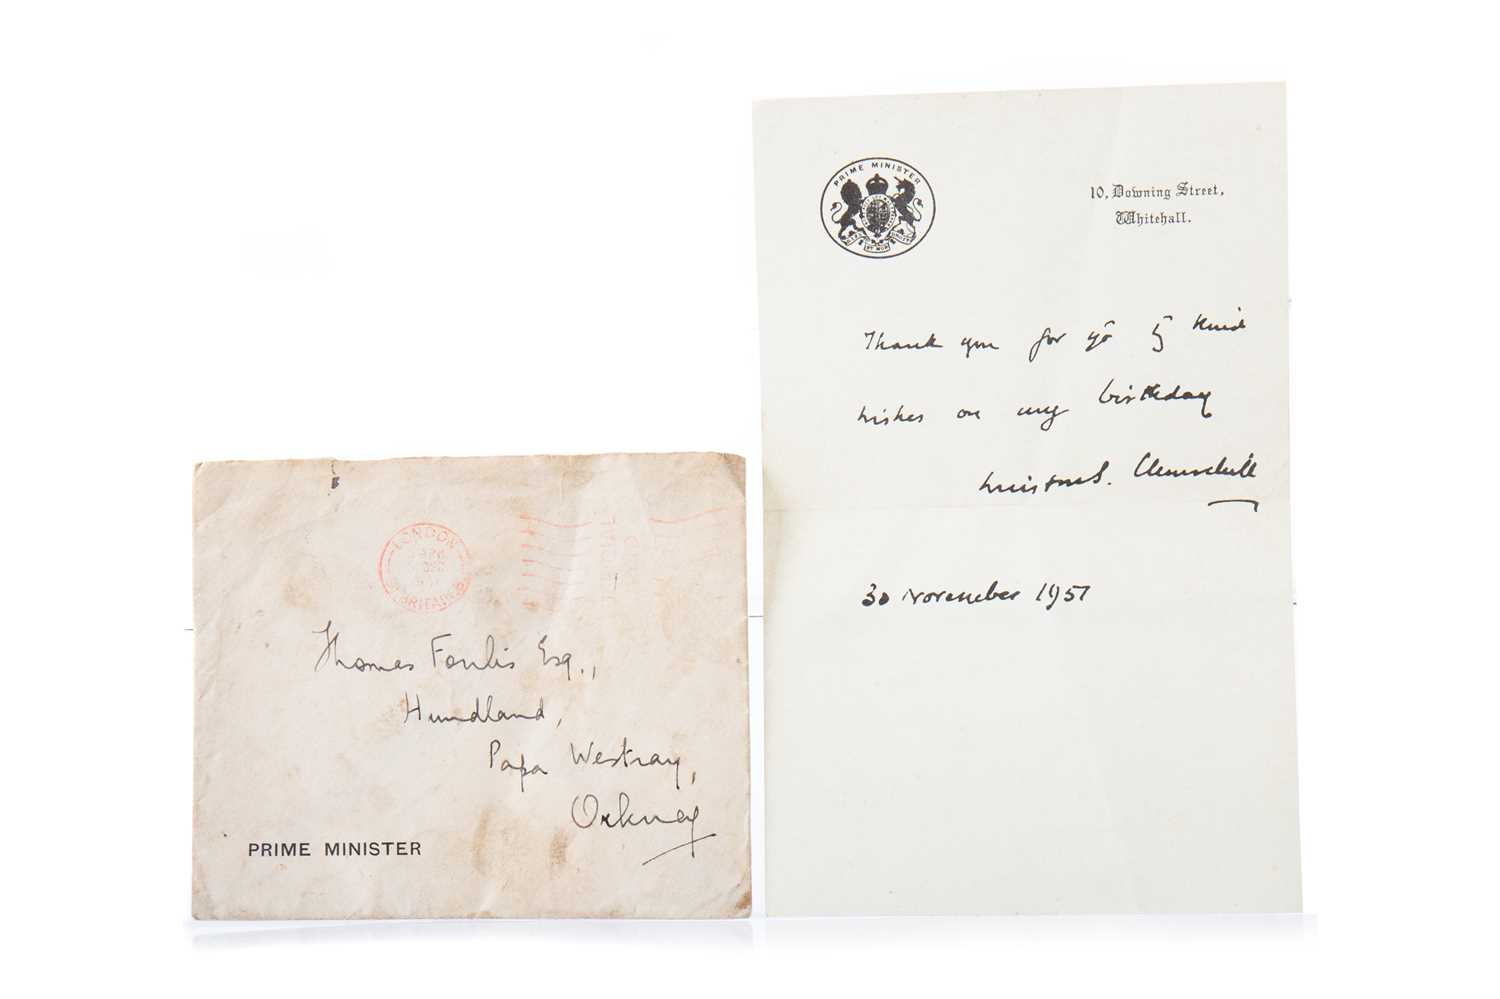 PRIME MINISTER
10, Downing Street,
Whitehall.
Thank you for yr kind
wishes on my birthday
Winston S. Churchill
30 November 1951
LONDON
Thomas Foulis Esq.,
Hundland,
Papa Westray,
Orkney
PRIME MINISTER